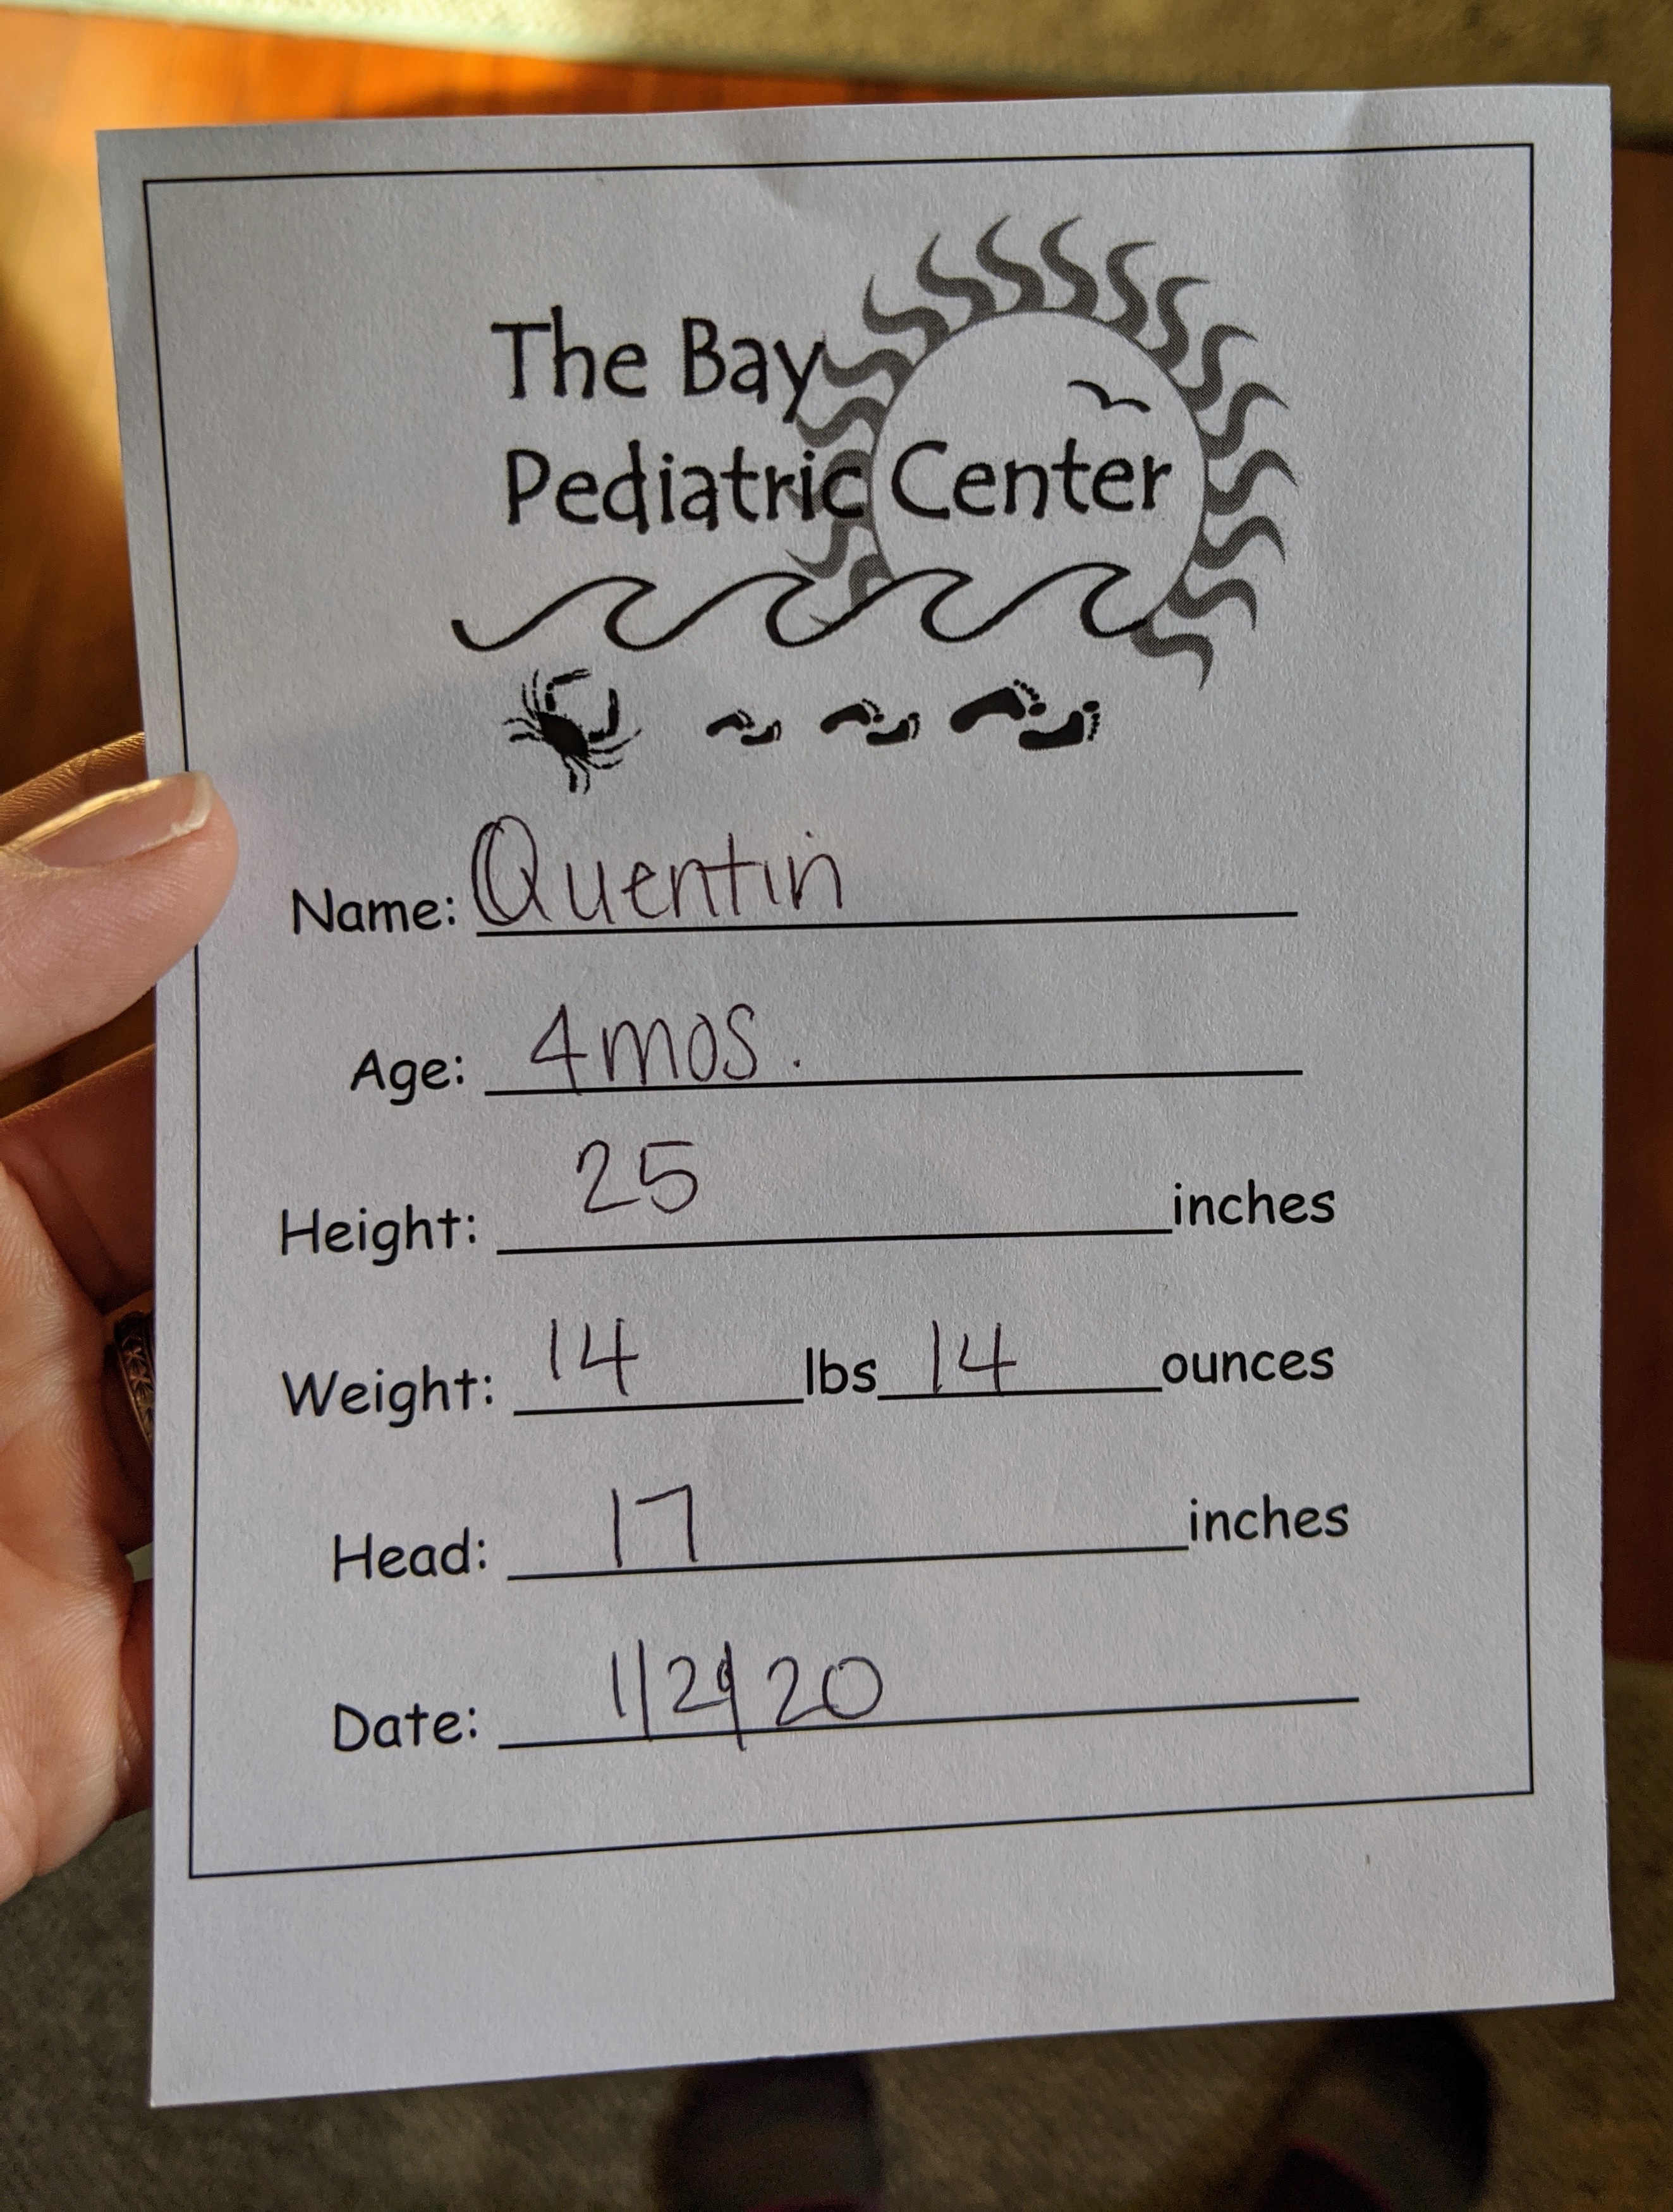 The Bay
Pediatric Center
Name: Quentin
Age: 4mos.
Height: 25 inches
Weight: 14 lbs 14 ounces
Head: 17 inches
Date: 1/29/20